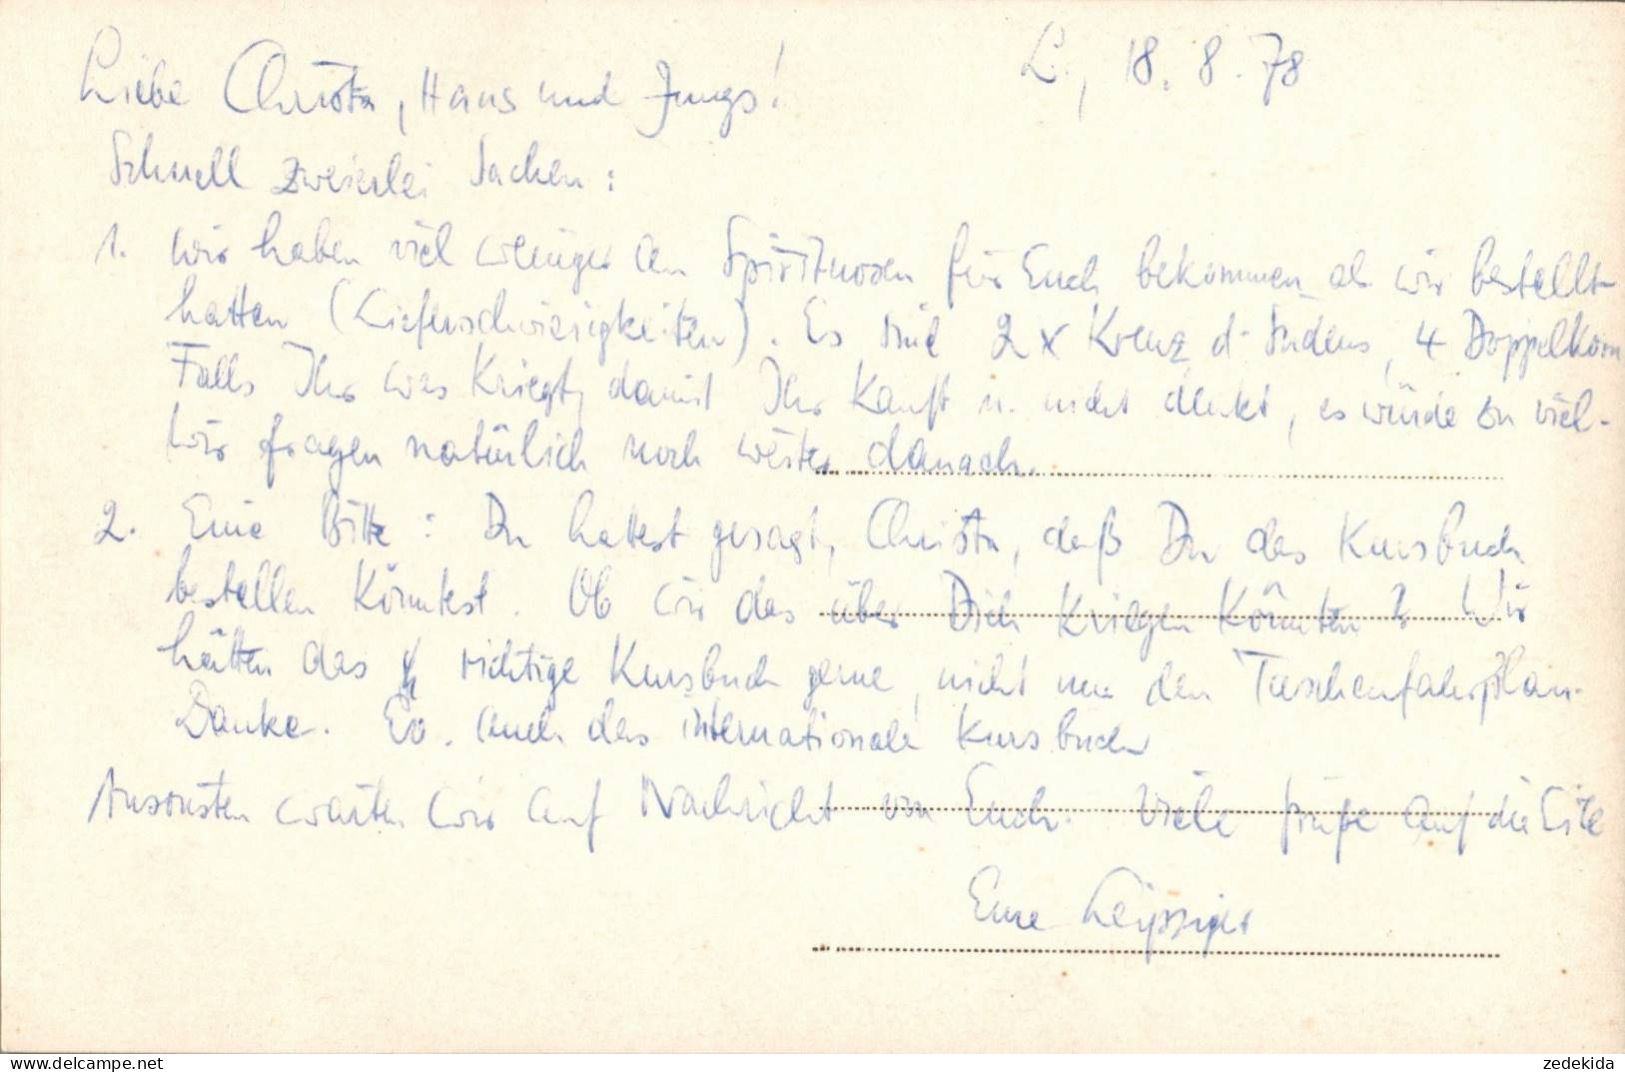 L., 18.8.78
Liebe Christa, Hans und Jungs!
Schnell zweierlei Sachen:
1. Wir haben viel weniger an Spirituosen für Euch bekommen als wir bestellt
hatten (Lieferschwierigkeiten). Es sind 2 x Kreuz d. Südens, 4 Doppelkorn
Falls Ihr was kriegt, damit Ihr kauft u. nicht denkt, es würde zu viel.
Wir fragen natürlich noch weiter danach.
2. Eine Bitte: Du hattest gesagt, Christa, daß Du das Kursbuch
bestellen könntest. Ob wir das über Dich kriegen könnten? Wir
hätten das richtige Kursbuch gerne, nicht nur den Taschenfahrplan.
Danke. Ev. auch das internationale Kursbuch
Ansonsten warten wir auf Nachricht von Euch. Viele Grüße auf die Eile
Eure Leipziger
www.delcampe.net
zedekida